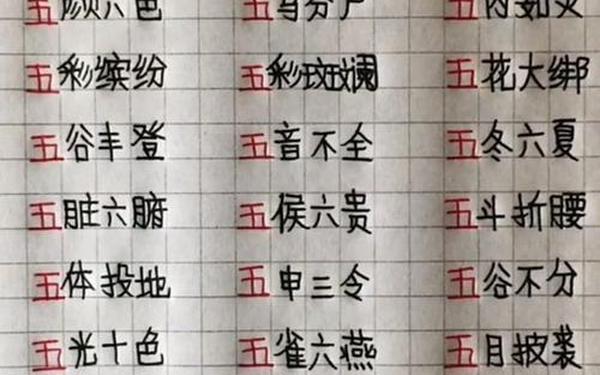 五颜六色 五马分尸 五内如焚
五彩缤纷 五彩斑斓 五花大绑
五谷丰登 五音不全 五冬六夏
五脏六腑 五侯六贵 五斗折腰
五体投地 五申三令 五谷不分
五光十色 五雀六燕 五月披裘